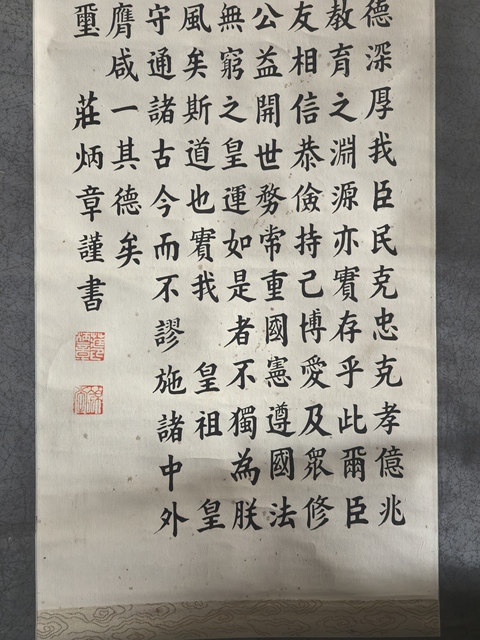 德深厚我臣民克忠克孝億兆
敎育之淵源亦實存乎此爾臣
友相信恭儉持己博愛及眾修
公益開世務常重國憲遵國法
無窮之皇運如是者不獨為朕
風矣斯道也實我 皇祖 皇
守通諸古今而不謬施諸中外
膺咸一其德矣
璽 莊炳章謹書